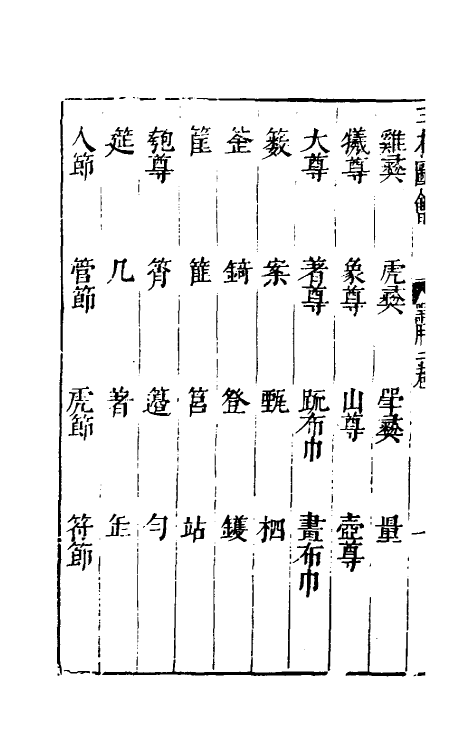 三才圖會 器用二卷 一
雞彝 虎彝 斝彝 量
犧尊 象尊 山尊 壺尊
大尊 著尊 䟽布巾 畫布巾
籔 案 甄 柶
釜 錡 登 鑊
筐 篚 筥 站
匏尊 筲 籩 勺
筵 几 著 缶
人節 管節 虎節 符節